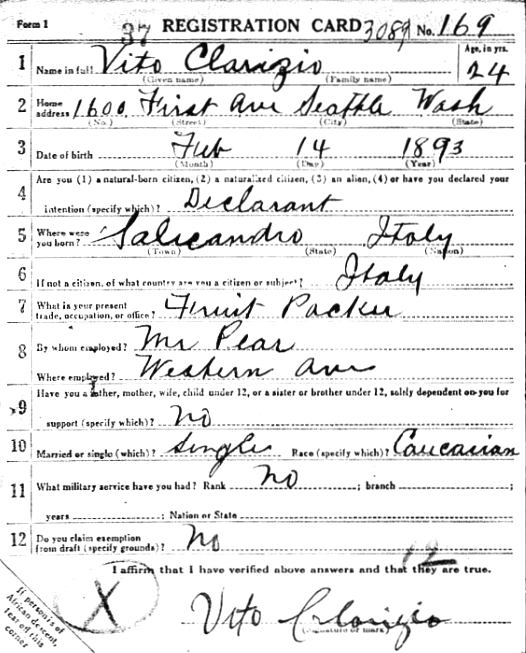 Form 1 37 REGISTRATION CARD 3089 No. 169
1 Name in full Vito Clarizio Age, in yrs. 24
(Given name) (Family name)
2 Home address 1600 First Ave Seattle Wash
(No.) (Street) (City) (State)
3 Date of birth Feb 14 1893
(Month) (Day) (Year)
Are you (1) a natural-born citizen, (2) a naturalized citizen, (3) an alien, (4) or have you declared your
4 intention (specify which)? Declarant
5 Where were you born? Salicandro Italy
(Town) (State) (Nation)
6 If not a citizen, of what country are you a citizen or subject? Italy
7 What is your present trade, occupation, or office? Fruit Packer
8 By whom employed? Mr Pear
Where employed? Western Ave
Have you a father, mother, wife, child under 12, or a sister or brother under 12, solely dependent on you for
9 support (specify which)? No
10 Married or single (which)? Single Race (specify which)? Caucasian
11 What military service have you had? Rank No ; branch ;
years ; Nation or State
12 Do you claim exemption from draft (specify grounds)? No
12
I affirm that I have verified above answers and that they are true.
X
Vito Clarizio
(Signature or mark)
If person is of African descent, tear off this corner